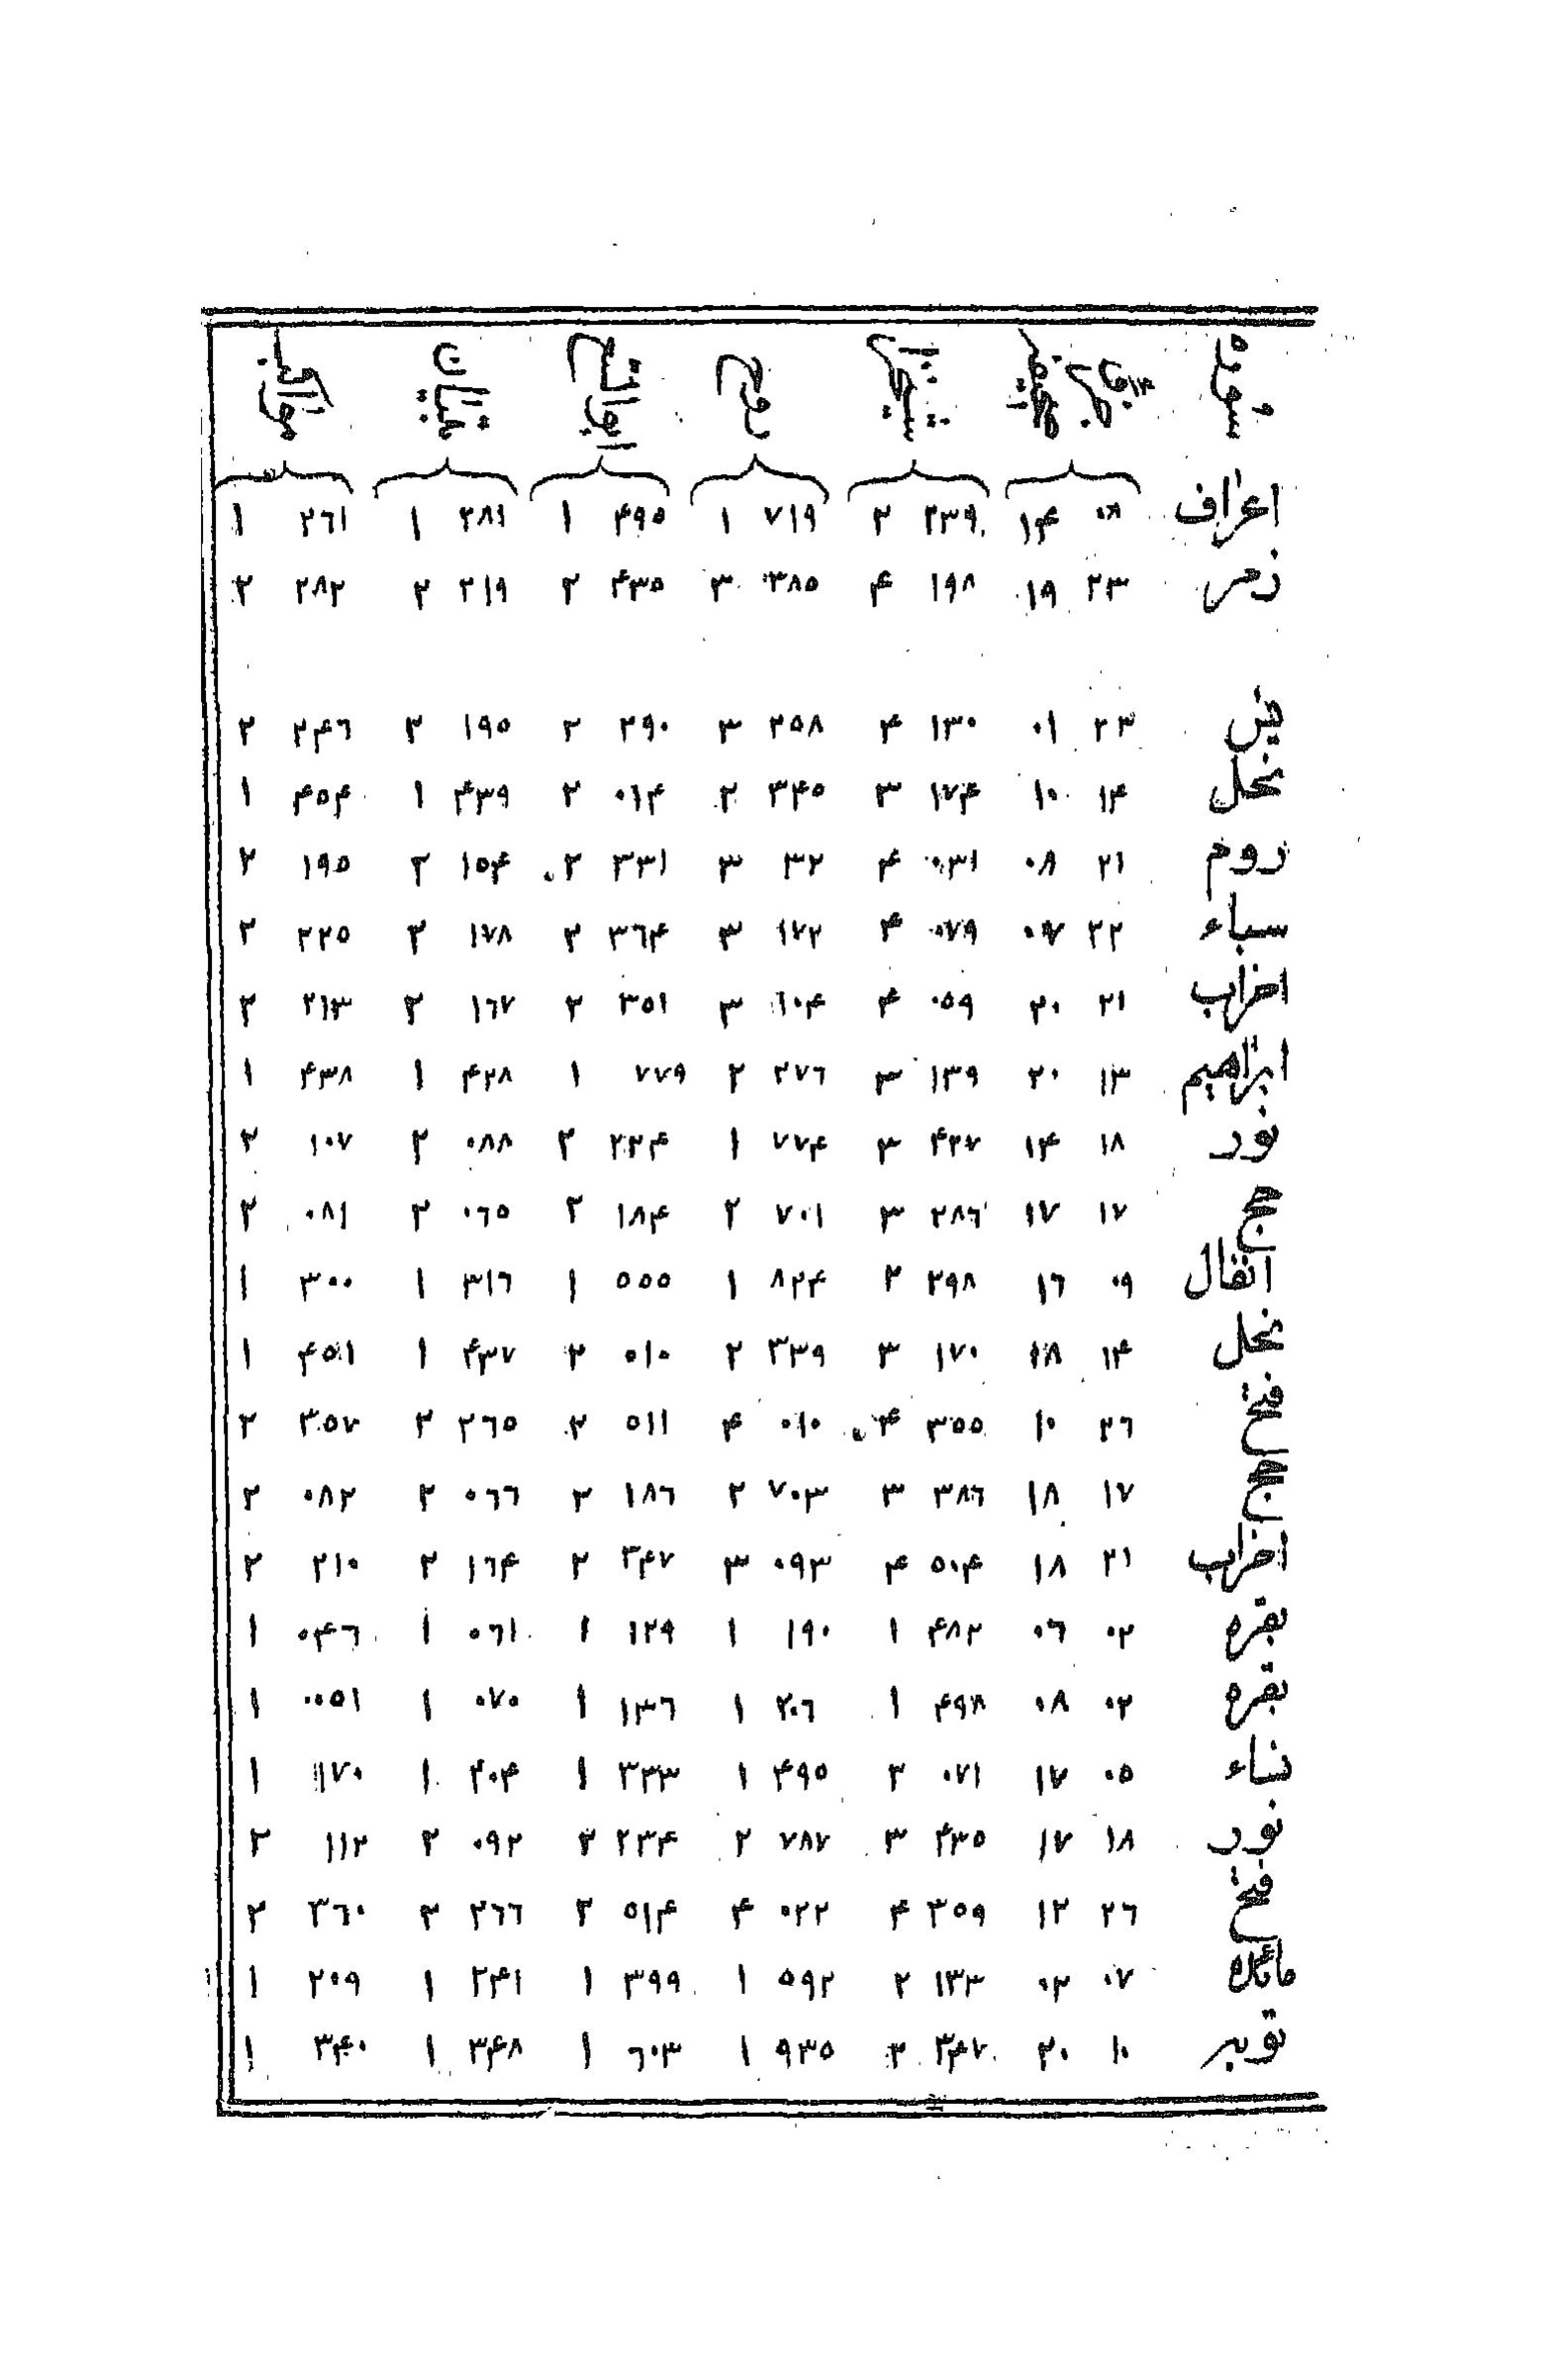 اعراف ۰۸ ۱۴ ۲۳۹ ۲ ۷۱۹ ۱ ۴۹۵ ۱ ۲۸۱ ۱ ۲٦۱ ۱
زمر ۲۳ ۱۹ ۱۹۸ ۴ ۳۸۵ ۳ ۴۳۵ ۲ ۲۱۹ ۲ ۲۸۲ ۲
یس ۲۳ ۰۱ ۱۳۰ ۴ ۲۵۸ ۳ ۲۹۰ ۲ ۱۹۵ ۲ ۲۴٦ ۲
نحل ۱۴ ۱۰ ۱۷۴ ۳ ۳۴۵ ۲ ۰۱۴ ۲ ۴۳۹ ۱ ۴۵۴ ۱
روم ۲۱ ۰۸ ۰۳۱ ۴ ۳۲ ۳ ۳۳۱ ۲ ۱۵۴ ۲ ۱۹۵ ۲
سباء ۲۲ ۰۷ ۰۷۹ ۴ ۱۷۲ ۳ ۳٦۴ ۲ ۱۷۸ ۲ ۲۲۵ ۲
احزاب ۲۱ ۲۰ ۰۵۹ ۴ ٦۰۴ ۳ ۳۵۱ ۲ ۱٦۷ ۲ ۲۱۳ ۲
ابراهیم ۱۳ ۲۰ ۱۳۹ ۳ ۲۷٦ ۲ ۷۷۹ ۱ ۴۲۸ ۱ ۴۳۸ ۱
نور ۱۸ ۱۴ ۴۲۷ ۳ ۷۷۴ ۱ ۲۲۴ ۲ ۰۸۸ ۲ ۱۰۷ ۲
حج ۱۷ ۱۷ ۲۸٦ ۳ ۷۰۱ ۲ ۱۸۴ ۲ ۰٦۵ ۲ ۰۸۱ ۲
انفال ۰۹ ۱٦ ۲۹۸ ۲ ۸۲۴ ۱ ۵۵۵ ۱ ۳۱٦ ۱ ۳۰۰ ۱
نحل ۱۴ ۱۸ ۱۷۰ ۳ ۳۳۹ ۲ ۰۱۰ ۲ ۴۳۷ ۱ ۴۵۱ ۱
فتح ۲٦ ۱۰ ۳۵۵ ۴ ۰۱۰ ۴ ۵۱۱ ۲ ۲٦۵ ۲ ۳۵۷ ۲
حج ۱۷ ۱۸ ۳۸٦ ۳ ۷۰۳ ۲ ۱۸٦ ۲ ۰٦٦ ۲ ۰۸۲ ۲
احزاب ۲۱ ۱۸ ۵۰۴ ۴ ۰۹۳ ۳ ۳۴۷ ۲ ۱٦۴ ۲ ۲۱۰ ۲
بقره ۰۲ ۰٦ ۴۸۲ ۱ ۱۹۰ ۱ ۱۲۹ ۱ ۰٦۱ ۱ ۰۴٦ ۱
بقره ۰۲ ۰۸ ۴۹۸ ۱ ۲۰٦ ۱ ۱۳٦ ۱ ۰۷۰ ۱ ۰۵۱ ۱
نساء ۰۵ ۱۷ ۰۷۱ ۲ ۴۹۵ ۱ ۳۳۳ ۱ ۲۰۴ ۱ ۱۷۰ ۱
نور ۱۸ ۱۷ ۴۳۵ ۳ ۷۸۷ ۲ ۲۳۴ ۲ ۰۹۲ ۲ ۱۱۲ ۲
فتح ۲٦ ۱۲ ۳۵۹ ۴ ۰۲۲ ۴ ۵۱۴ ۲ ۲٦٦ ۲ ۳٦۰ ۲
مائده ۰۷ ۰۲ ۱۳۳ ۲ ۵۹۲ ۱ ۳۹۹ ۱ ۲۴۱ ۱ ۲۰۹ ۱
توبه ۱۰ ۲۰ ۳۴۷ ۲ ۹۳۵ ۱ ٦۰۳ ۱ ۳۴۸ ۱ ۳۴۰ ۱